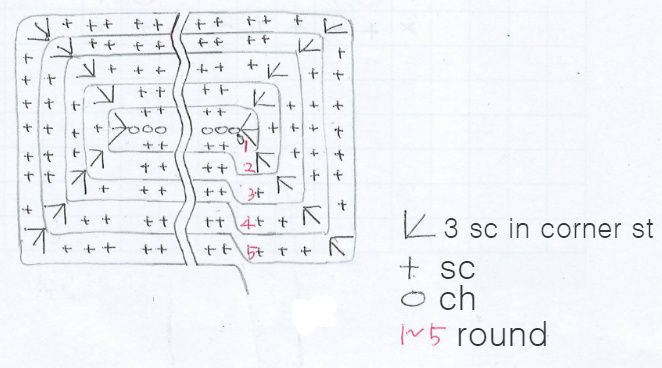 1
2
3
4
5
3 sc in corner st
sc
ch
1~5 round